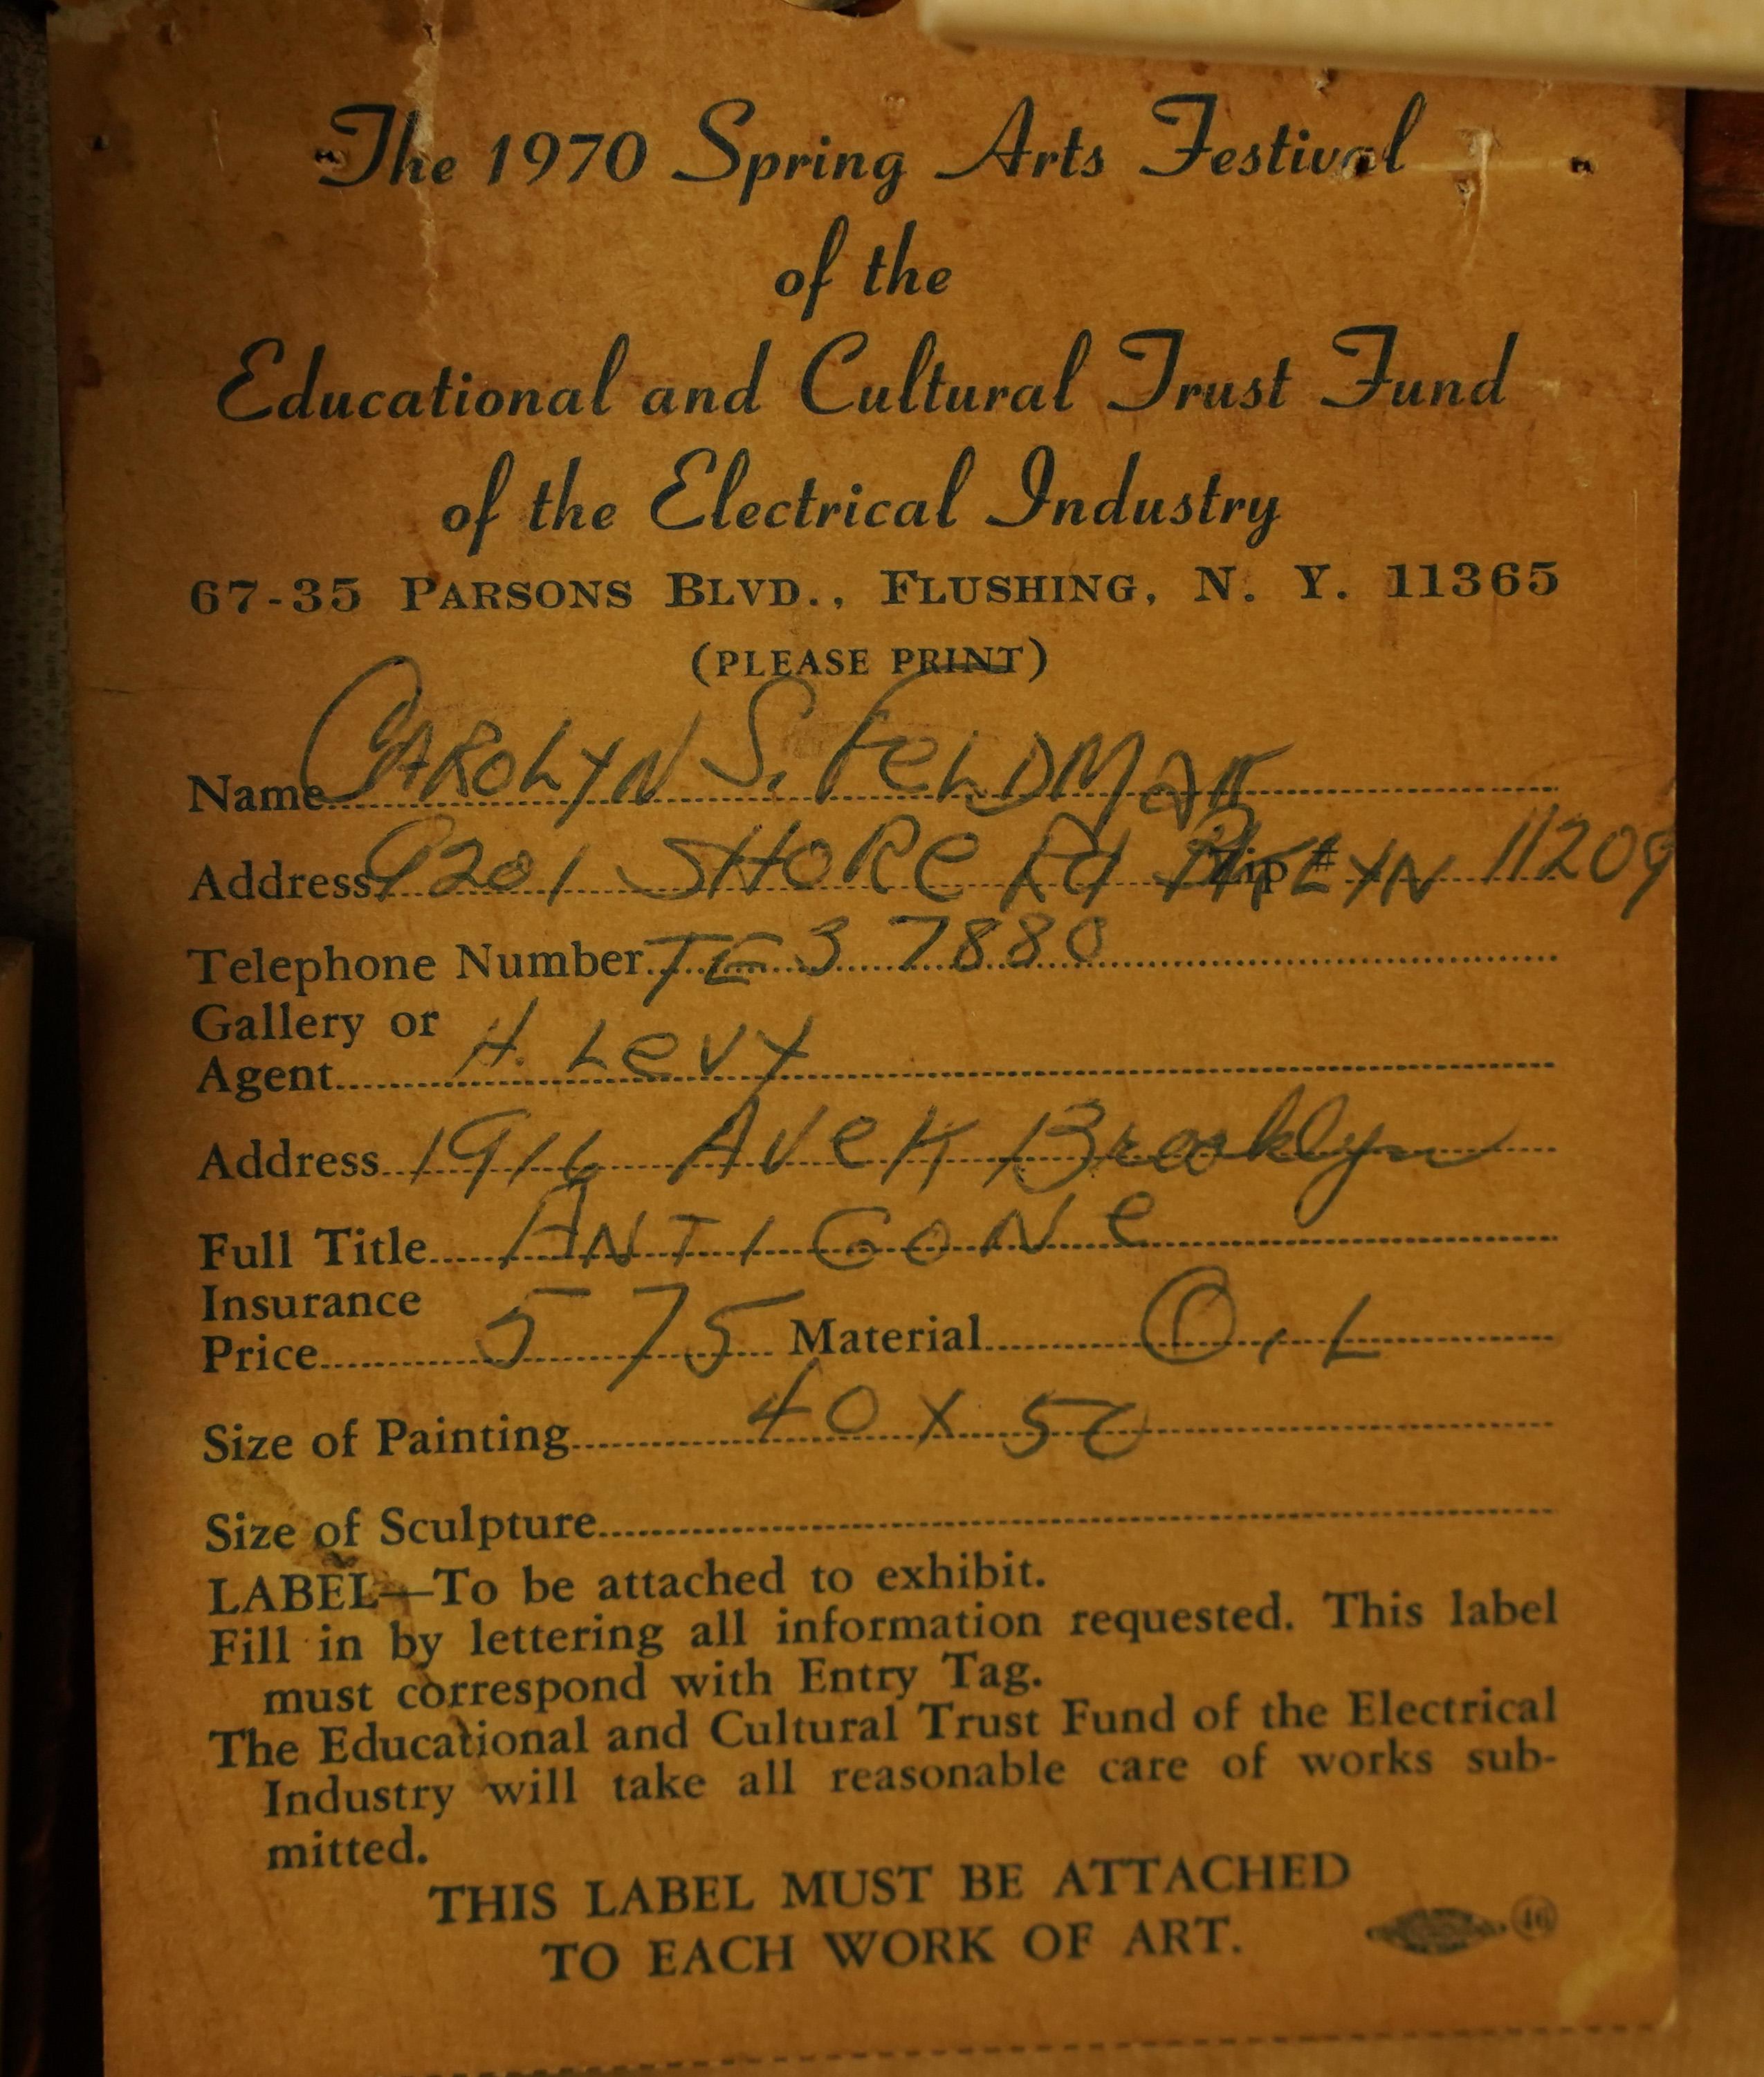 The 1970 Spring Arts Festival
of the
Educational and Cultural Trust Fund
of the Electrical Industry
67-35 PARSONS BLVD., FLUSHING, N. Y. 11365
(PLEASE PRINT)
Name CAROLYN S. FeLDMAN
Address 9201 SHORe Rd BKLYN Zip # 11209
Telephone Number TE3 7880
Gallery or
Agent H. LeVY
Address 1916 AVe K Brooklyn
Full Title ANTIGONe
Insurance
Price 575 Material OIL
Size of Painting 40 x 50
Size of Sculpture
LABEL—To be attached to exhibit.
Fill in by lettering all information requested. This label
must correspond with Entry Tag.
The Educational and Cultural Trust Fund of the Electrical
Industry will take all reasonable care of works sub-
mitted.
THIS LABEL MUST BE ATTACHED
TO EACH WORK OF ART.
46